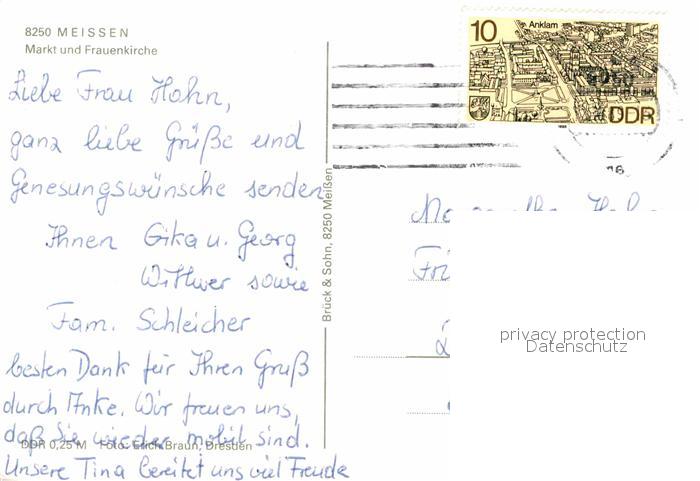 8250 MEISSEN
Markt und Frauenkirche
Liebe Frau Hahn,
ganz liebe Grüße und
Genesungswünsche senden
Ihnen Gika u. Georg
Wittwer sowie
Fam. Schleicher
besten Dank für Ihren Gruß
durch Anke. Wir freuen uns,
daß Sie wieder mobil sind.
DDR 0,25 M Foto: Erich Braun, Dresden
Unsere Tina bereitet uns viel Freude
Brück & Sohn, 8250 Meißen
10
Anklam
DDR
privacy protection
Datenschutz